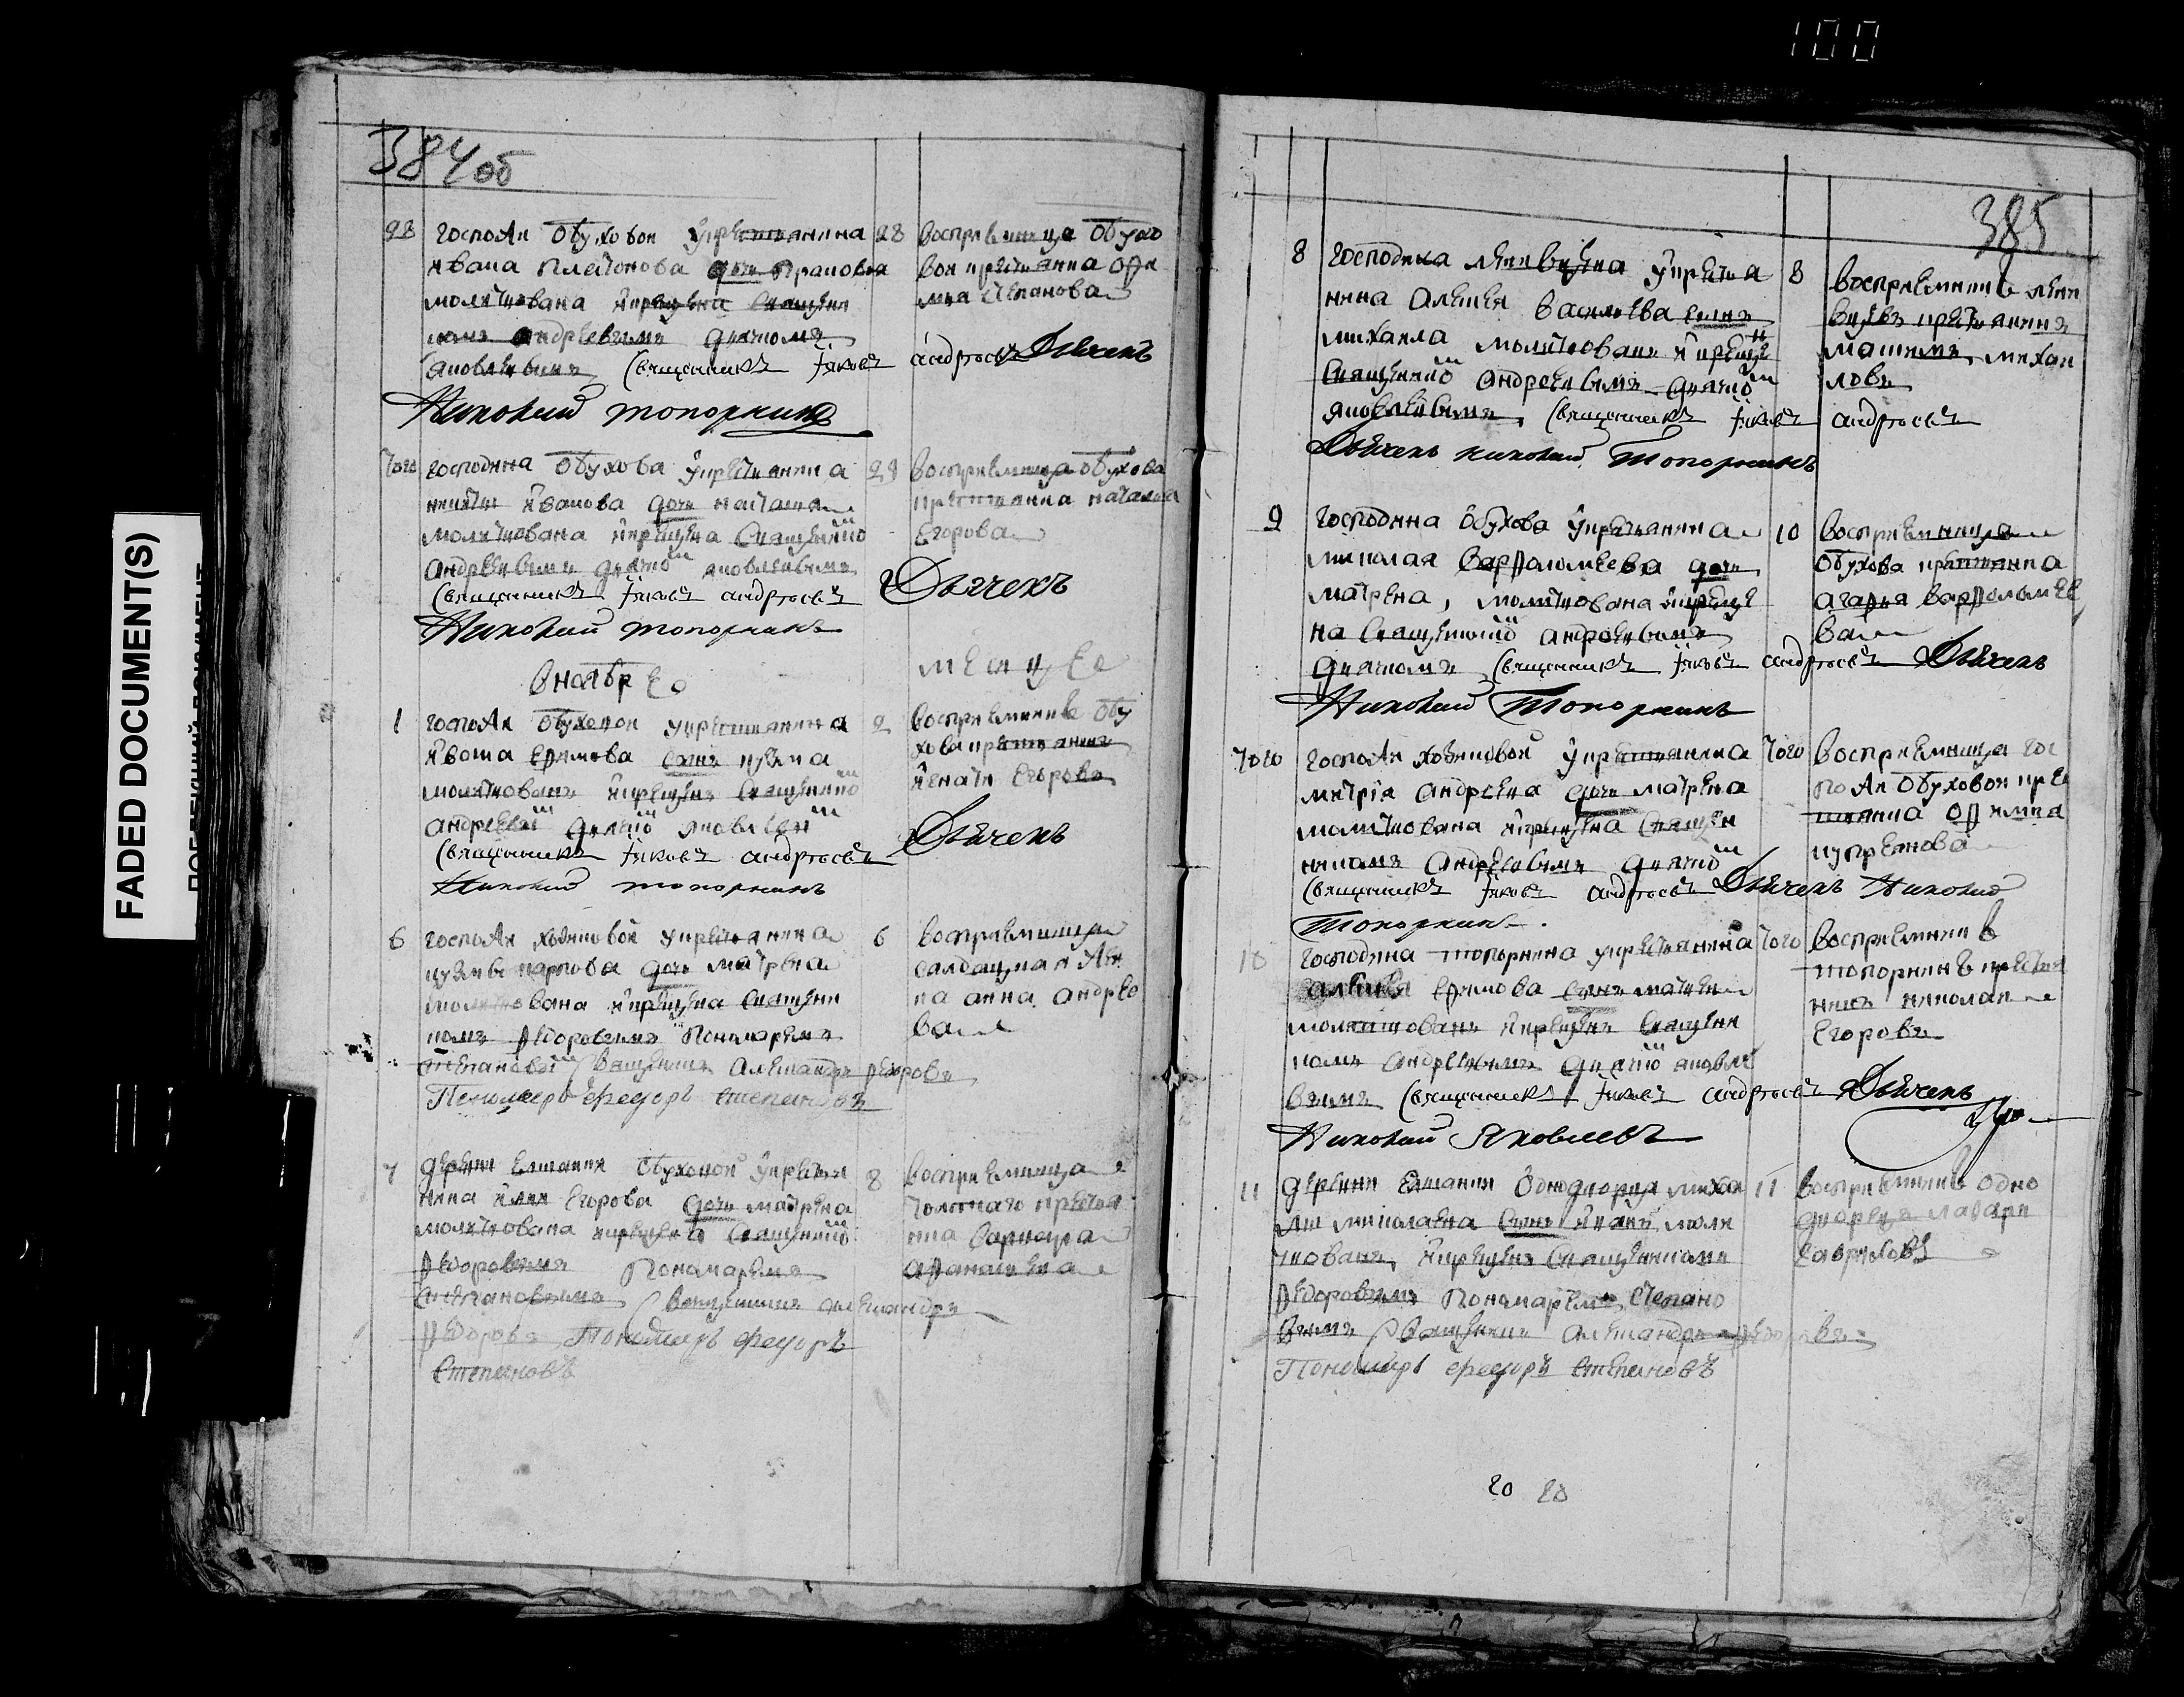 100
FADED DOCUMENT(S)
384 об
28 госпожи Обуховой у крестьянина
Ивана Платонова дочь Прасковья
молитвована и крещена священни
комъ Андреевымъ дьячкомъ
Яковлевымъ священникъ Iяковъ Андреевъ Дьячекъ
Николай Топоркинъ
28 восприемница Обухо
вой крестьянка Офи
мья Степанова
того господина Обухова у крестьянина
Никиты Иванова дочь Наталья
молитвована и крещена священико
Андреевымъ дьячко Яковлевымъ
священникъ Iяковъ Андреевъ Дьячекъ
Николай Топоркинъ
29 восприемница Обухова
крестьянка Наталья
Егорова
в ноябре
месяце
1 госпожи Обуховой у крестьянина
Ивана Ефимова сынъ Кузма
молитвованъ и крещенъ священико
Андреевы дьячко Яковлевы
священникъ Iяковъ Андреевъ Дьячекъ
Николай Топоркинъ
2 восприемникъ Обу
хова крестьянинъ
Игнати Егоровъ
6 госпожи у крестьянина
Кузмы Карпова дочь Матрена
молитвована и крещена священи
комъ Федоровымъ Пономаремъ
Степановы священникъ Александръ Федоровъ
Пономарь Федоръ Степановъ
6 восприемница
салдацкая
ка Анна Андрее
ва
7 деревни Елшанки Обуховой у крестья
нина Ильи Егорова дочь Матрена
молитвована и крещена священико
Федоровымъ Пономаремъ
Степановымъ священникъ Александръ
Федоровъ Пономарь Федоръ
Степановъ
8 восприемница
крестья
нка Варвара
Афанасьева
385
8 господина у крестья
нина Алексея Васильева сынъ
Михаила молитвованъ и креще
священико Андреевымъ дьячко
Яковлевымъ священникъ Iяковъ Андреевъ
Дьячекъ Николай Топоркинъ
8 восприемникъ
крестьянинъ
Максимъ Михаи
ловъ
9 господина Обухова у крестьянина
Николая Варфоломеева дочь
Матрена, молитвована и креще
на священико Андреевымъ
дьячкомъ священникъ Iяковъ Андреевъ Дьячекъ
Николай Топоркинъ
10 восприемница
Обухова крестьянка
Агафья Варфоломее
ва
того госпожи у крестьянина
Митрiя Андреева дочь Матрена
молитвована и крещена священ
никомъ Андреевымъ дьячко
священникъ Iяковъ Андреевъ Дьячекъ Николай
Топоркинъ
того восприемница гос
пожи Обуховой кре
стьянка Офимья
Куприянова
10 господина Топорнина у крестьянина
Ефимова сынъ Матвей
молитвованъ и крещенъ священи
комъ Андреевымъ дьячко Яковле
вымъ священникъ Iяковъ Андреевъ Дьячекъ
Николай Яковлевъ
того восприемникъ
Топорнинъ крестья
нинъ Николай
Егоровъ
11 деревни Елшанки Однодворца Михаи
лы Николаева сынъ Иванъ моли
твованъ и крещенъ священникомъ
Федоровымъ Пономаремъ Степано
вымъ священникъ Александръ Федоровъ
Пономарь Федоръ Степановъ
11 восприемникъ одно
дворецъ Лазарь
Гавриловъ
20 20